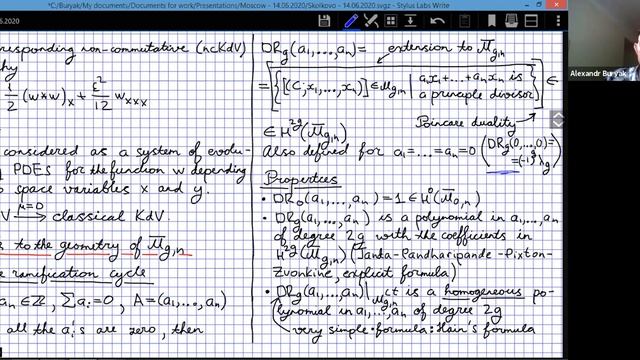 *C:/Buryak/My documents/Documents for work/Presentations/Moscow - 14.06.2020/Skolkovo - 14.06.2020.svgz - Stylus Labs Write
.06.2020
Alexandr Buryak
responding non-commutative (ncKdV)
hy
1/2 (w*w)ₓ + ε²/12 wₓₓₓ
considered as a system of evolu-
PDEs for the function w depending
space variables x and y.
V μ=0→ classical KdV.
to the geometry of M̅g,n
ramification cycle
aₙ∈ℤ, Σaᵢ=0, A=(a₁,…,aₙ)
all the aᵢ's are zero, then
DRg(a₁,…,aₙ)= extension to M̅g,n
= [{[(C;x₁,…,xₙ)]∈Mg,n | a₁x₁+…+aₙxₙ is
a principle divisor}] ∈
Poincare duality
∈ H²ᵍ(M̅g,n)
Also defined for a₁=…=aₙ=0 (DRg(0,…,0)=
=(-1)ᵍλg)
Properties
• DR₀(a₁,…,aₙ)=1∈H⁰(M̅₀,ₙ)
• DRg(a₁,…,aₙ) is a polynomial in a₁,…,aₙ
of degree 2g with the coefficients in
H²ᵍ(M̅g,n) (Janda-Pandharipande-Pixton-
Zvonkine, explicit formula)
• DRg(a₁,…,aₙ)|Mg,n^ct is a homogeneous po-
lynomial in a₁,…,aₙ of degree 2g
very simple formula: Hain's formula